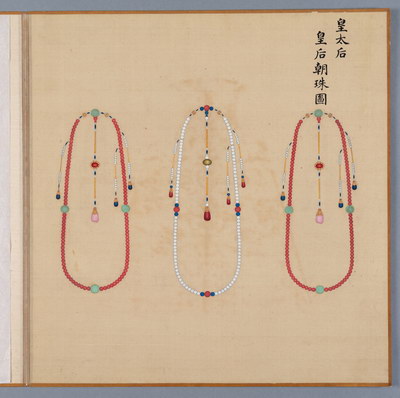 皇太后
皇后朝珠圖